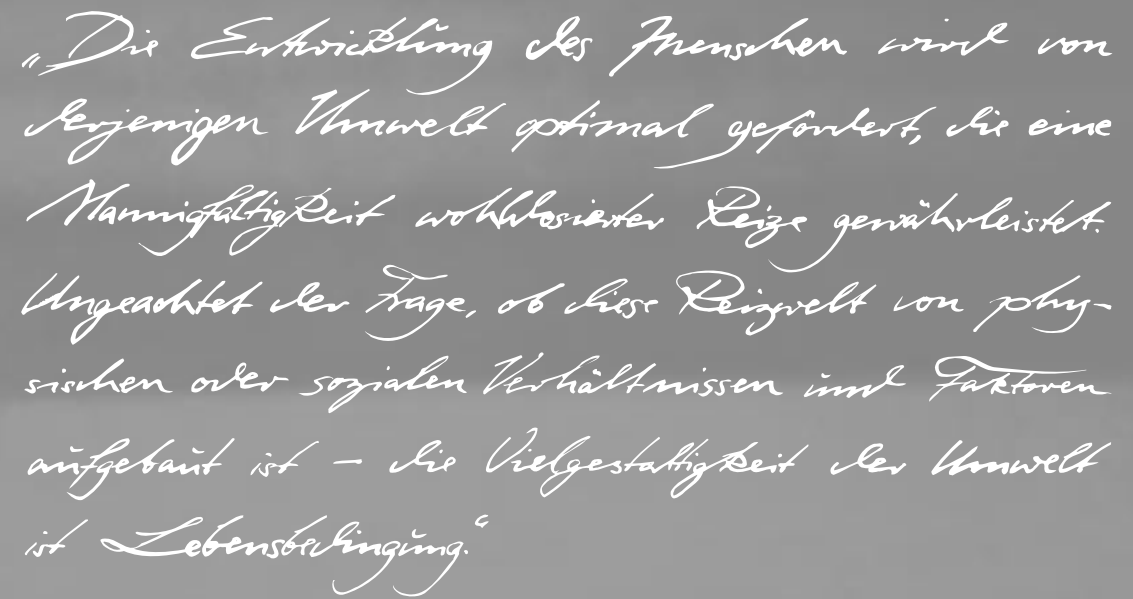 „Die Entwicklung des Menschen wird von
derjenigen Umwelt optimal gefördert, die eine
Mannigfaltigkeit wohldosierter Reize gewährleistet.
Ungeachtet der Frage, ob diese Reizwelt von phy-
sischen oder sozialen Verhältnissen und Faktoren
aufgebaut ist – die Vielgestaltigkeit der Umwelt
ist Lebensbedingung.“